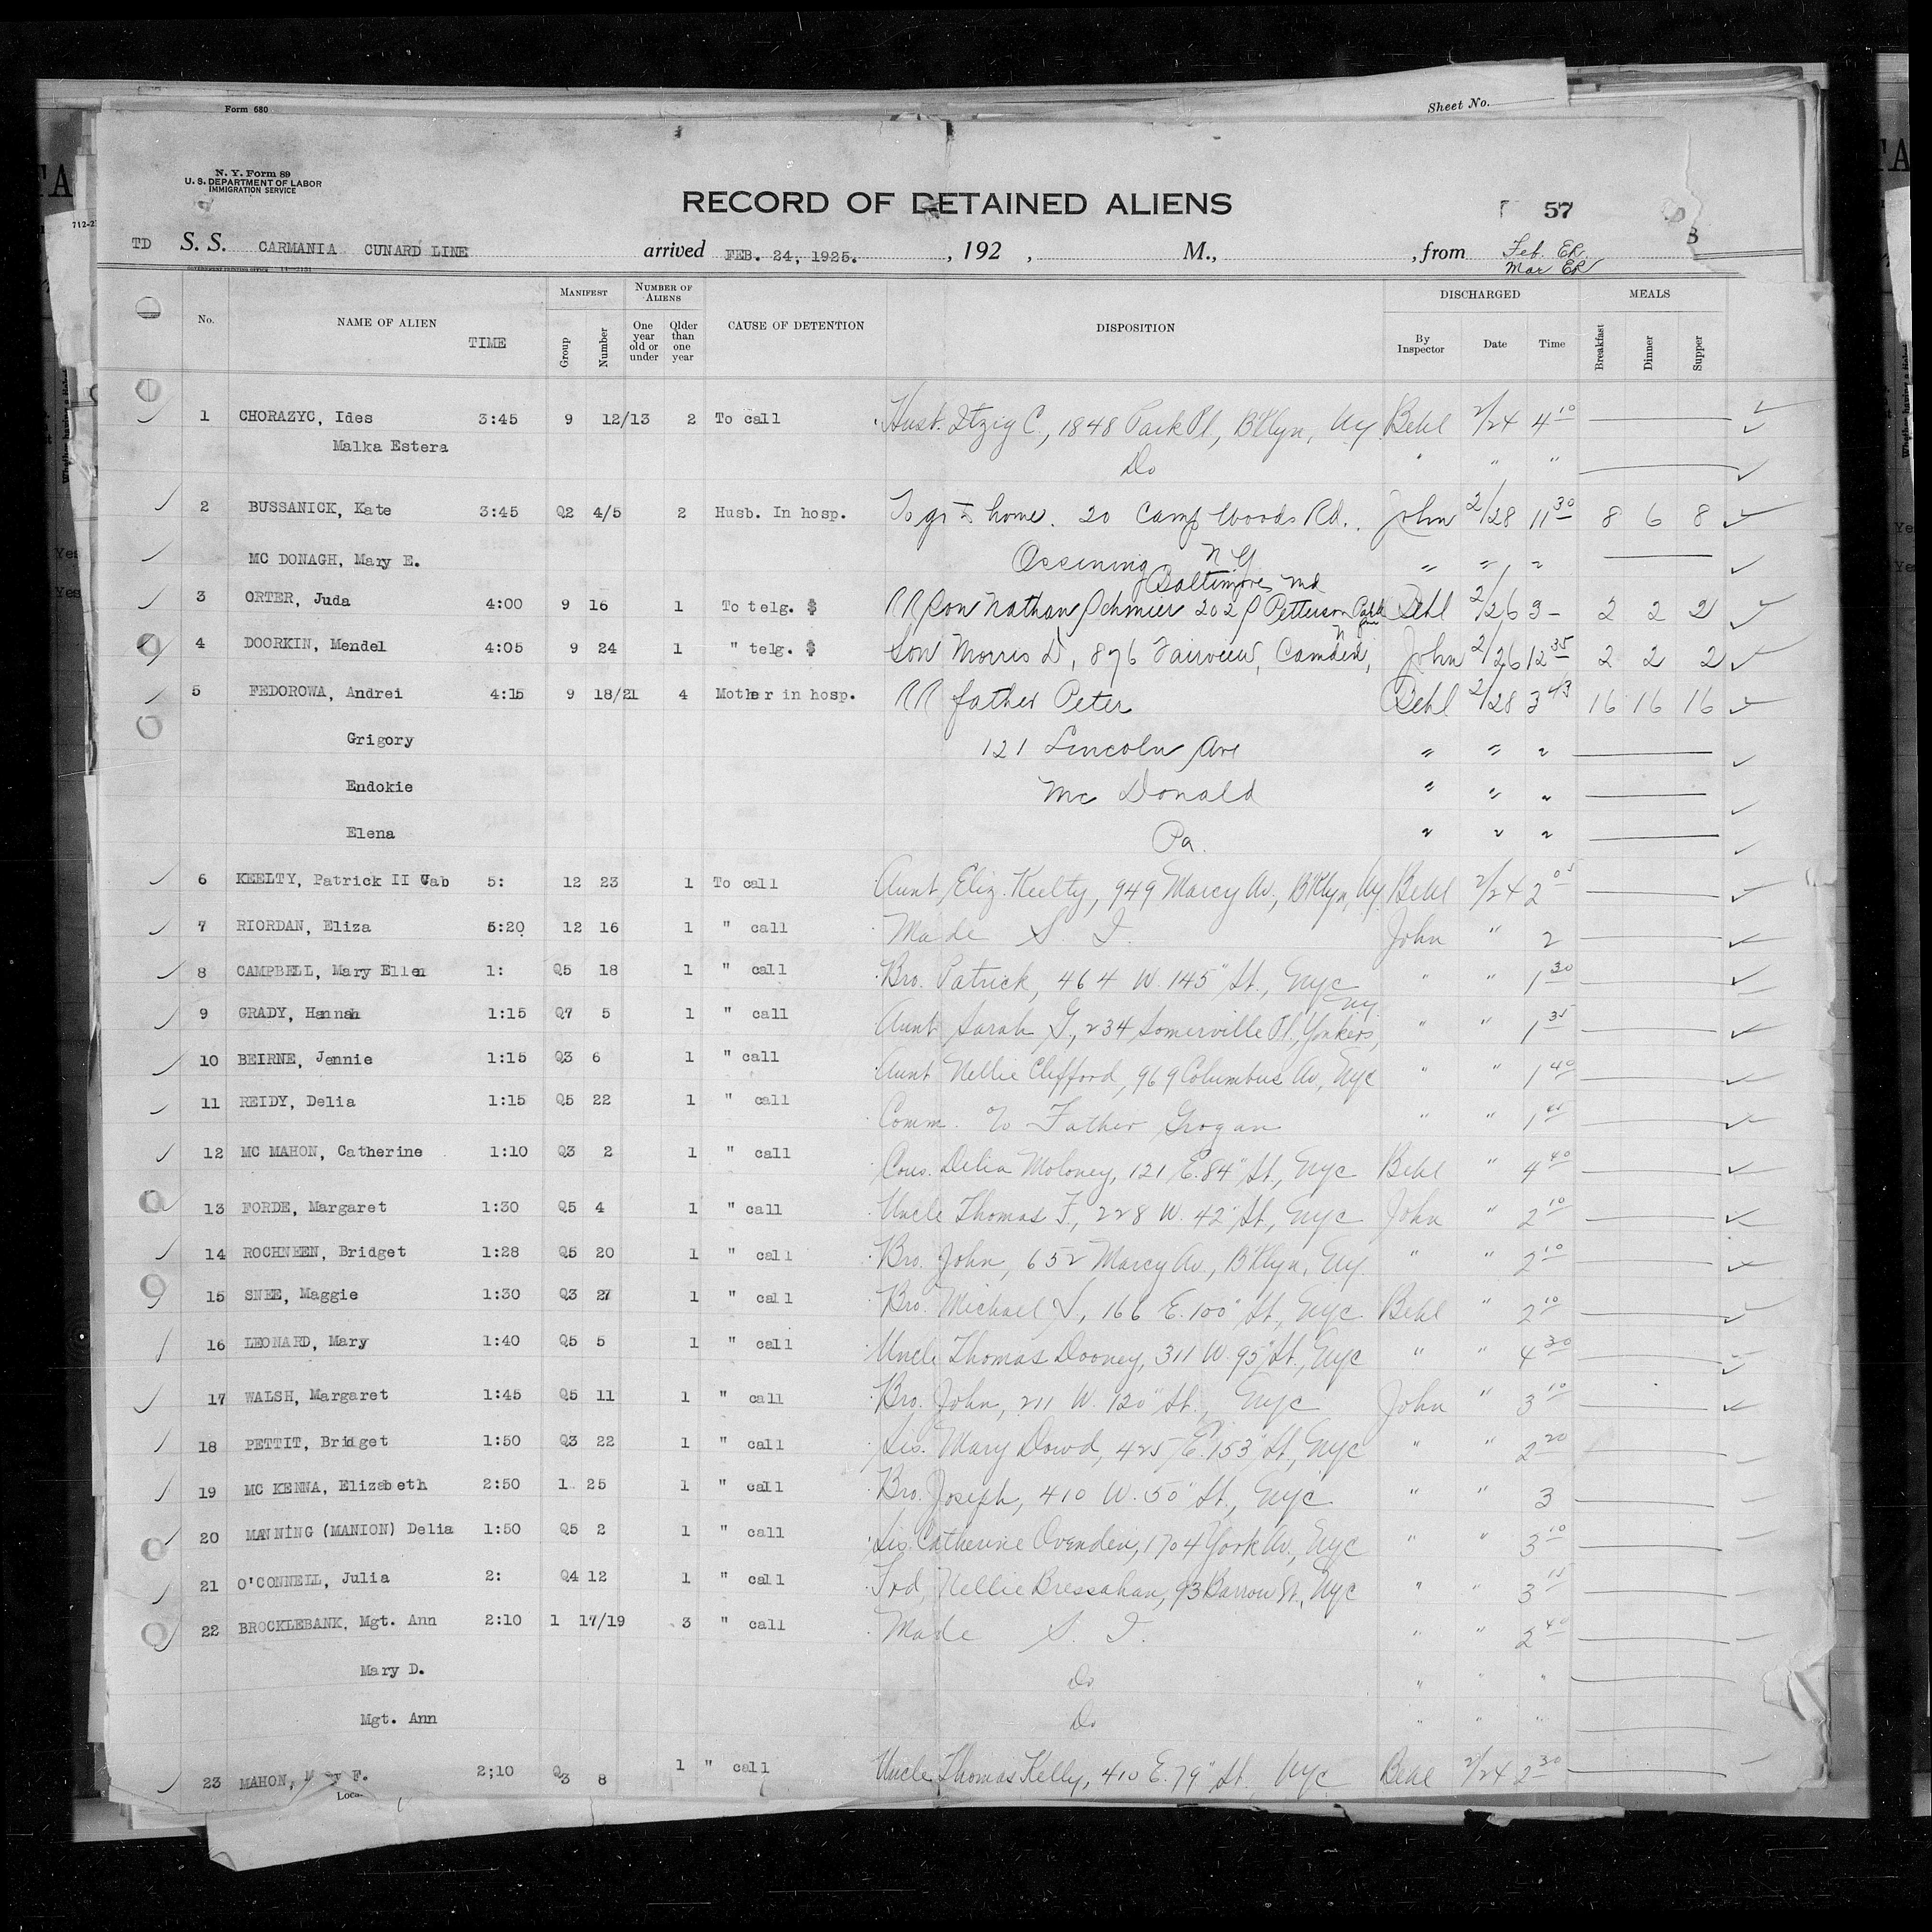 Form 680
Sheet No.
N. Y. Form 89
U. S. DEPARTMENT OF LABOR
IMMIGRATION SERVICE
RECORD OF DETAINED ALIENS 57
TD S. S. CARMANIA CUNARD LINE arrived FEB. 24, 1925. , 192 , M., , from Feb. ER.
Mar ER
No. NAME OF ALIEN TIME MANIFEST Group Number NUMBER OF ALIENS One year old or under Older than one year CAUSE OF DETENTION DISPOSITION DISCHARGED By Inspector Date Time MEALS Breakfast Dinner Supper
1 CHORAZYC, Ides 3:45 9 12/13 2 To call Hust. Itzig C., 1848 Park Pl, B'klyn, NY Behl 2/24 4 10
Malka Estera Do " " "
2 BUSSANICK, Kate 3:45 Q2 4/5 2 Husb. In hosp. To gr to home. 20 Camp Woods Rd. John 2/28 11 30 8 6 8
MC DONAGH, Mary E. Ossining N.Y. " " "
Baltimore Md
3 ORTER, Juda 4:00 9 16 1 To telg. $ RR son Nathan Schmier 202 S Petterson Park Behl 2/26 3 - 2 2 2
4 DOORKIN, Mendel 4:05 9 24 1 " telg. $ Son Morris D, 876 Fairview, Camden, John 2/26 12 35 2 2 2
5 FEDOROWA, Andrei 4:15 9 18/21 4 Mother in hosp. RR father Peter Behl 2/28 3 43 16 16 16
Grigory 121 Lincoln Ave " " "
Endokie Mc Donald " " "
Elena Pa. " " "
6 KEELTY, Patrick II Cab 5: 12 23 1 To call Aunt Eliz. Keelty, 949 Marcy Av., B'klyn, NY Behl 2/24 2 05
7 RIORDAN, Eliza 5:20 12 16 1 " call Made S. I. John " 2
8 CAMPBELL, Mary Ellen 1: Q5 18 1 " call Bro. Patrick, 464 W. 145" St., NYC " " 1 30
9 GRADY, Hannah 1:15 Q7 5 1 " call Aunt Sarah G, 234 Somerville Pl., Yonkers, NY " " 1 35
10 BEIRNE, Jennie 1:15 Q3 6 1 " call Aunt Nellie Clifford, 969 Columbus Av, NYC " " 1 40
11 REIDY, Delia 1:15 Q5 22 1 " call Comm. to Father Grogan " " 1 45
12 MC MAHON, Catherine 1:10 Q3 2 1 " call Cous. Delia Moloney, 121 E. 84" St, NYC Behl " 4 40
13 FORDE, Margaret 1:30 Q5 4 1 " call Uncle Thomas F., 228 W. 42" St, NYC John " 2 10
14 ROCHNEEN, Bridget 1:28 Q5 20 1 " call Bro. John, 652 Marcy Av., B'klyn, NY. " " 2 10
15 SNEE, Maggie 1:30 Q3 27 1 " call Bro. Michael S, 166 E. 100" St, NYC Behl " 2 10
16 LEONARD, Mary 1:40 Q5 5 1 " call Uncle Thomas Dooney, 311 W. 95" St., NYC " " 4 30
17 WALSH, Margaret 1:45 Q5 11 1 " call Bro. John, 211 W. 120" St., NYC John " 3 10
18 PETTIT, Bridget 1:50 Q3 22 1 " call Sis. Mary Dowd, 425 E. 153" St, NYC " " 2 20
19 MC KENNA, Elizabeth 2:50 1 25 1 " call Bro. Joseph, 410 W. 50" St., NYC " " 3
20 MANNING (MANION) Delia 1:50 Q5 2 1 " call Sis. Catherine Ovenden, 1704 York Av., NYC " " 3 10
21 O'CONNELL, Julia 2: Q4 12 1 " call Frd, Nellie Bressahan, 93 Barrow St., NYC " " 3 15
22 BROCKLEBANK, Mgt. Ann 2:10 1 17/19 3 " call Made S. I. " " 2 40
Mary D. Do " " "
Mgt. Ann Do " " "
23 MAHON, F. 2:10 Q3 8 1 " call Uncle Thomas Kelly, 410 E. 79" St. NYC Behl 2/24 2 30